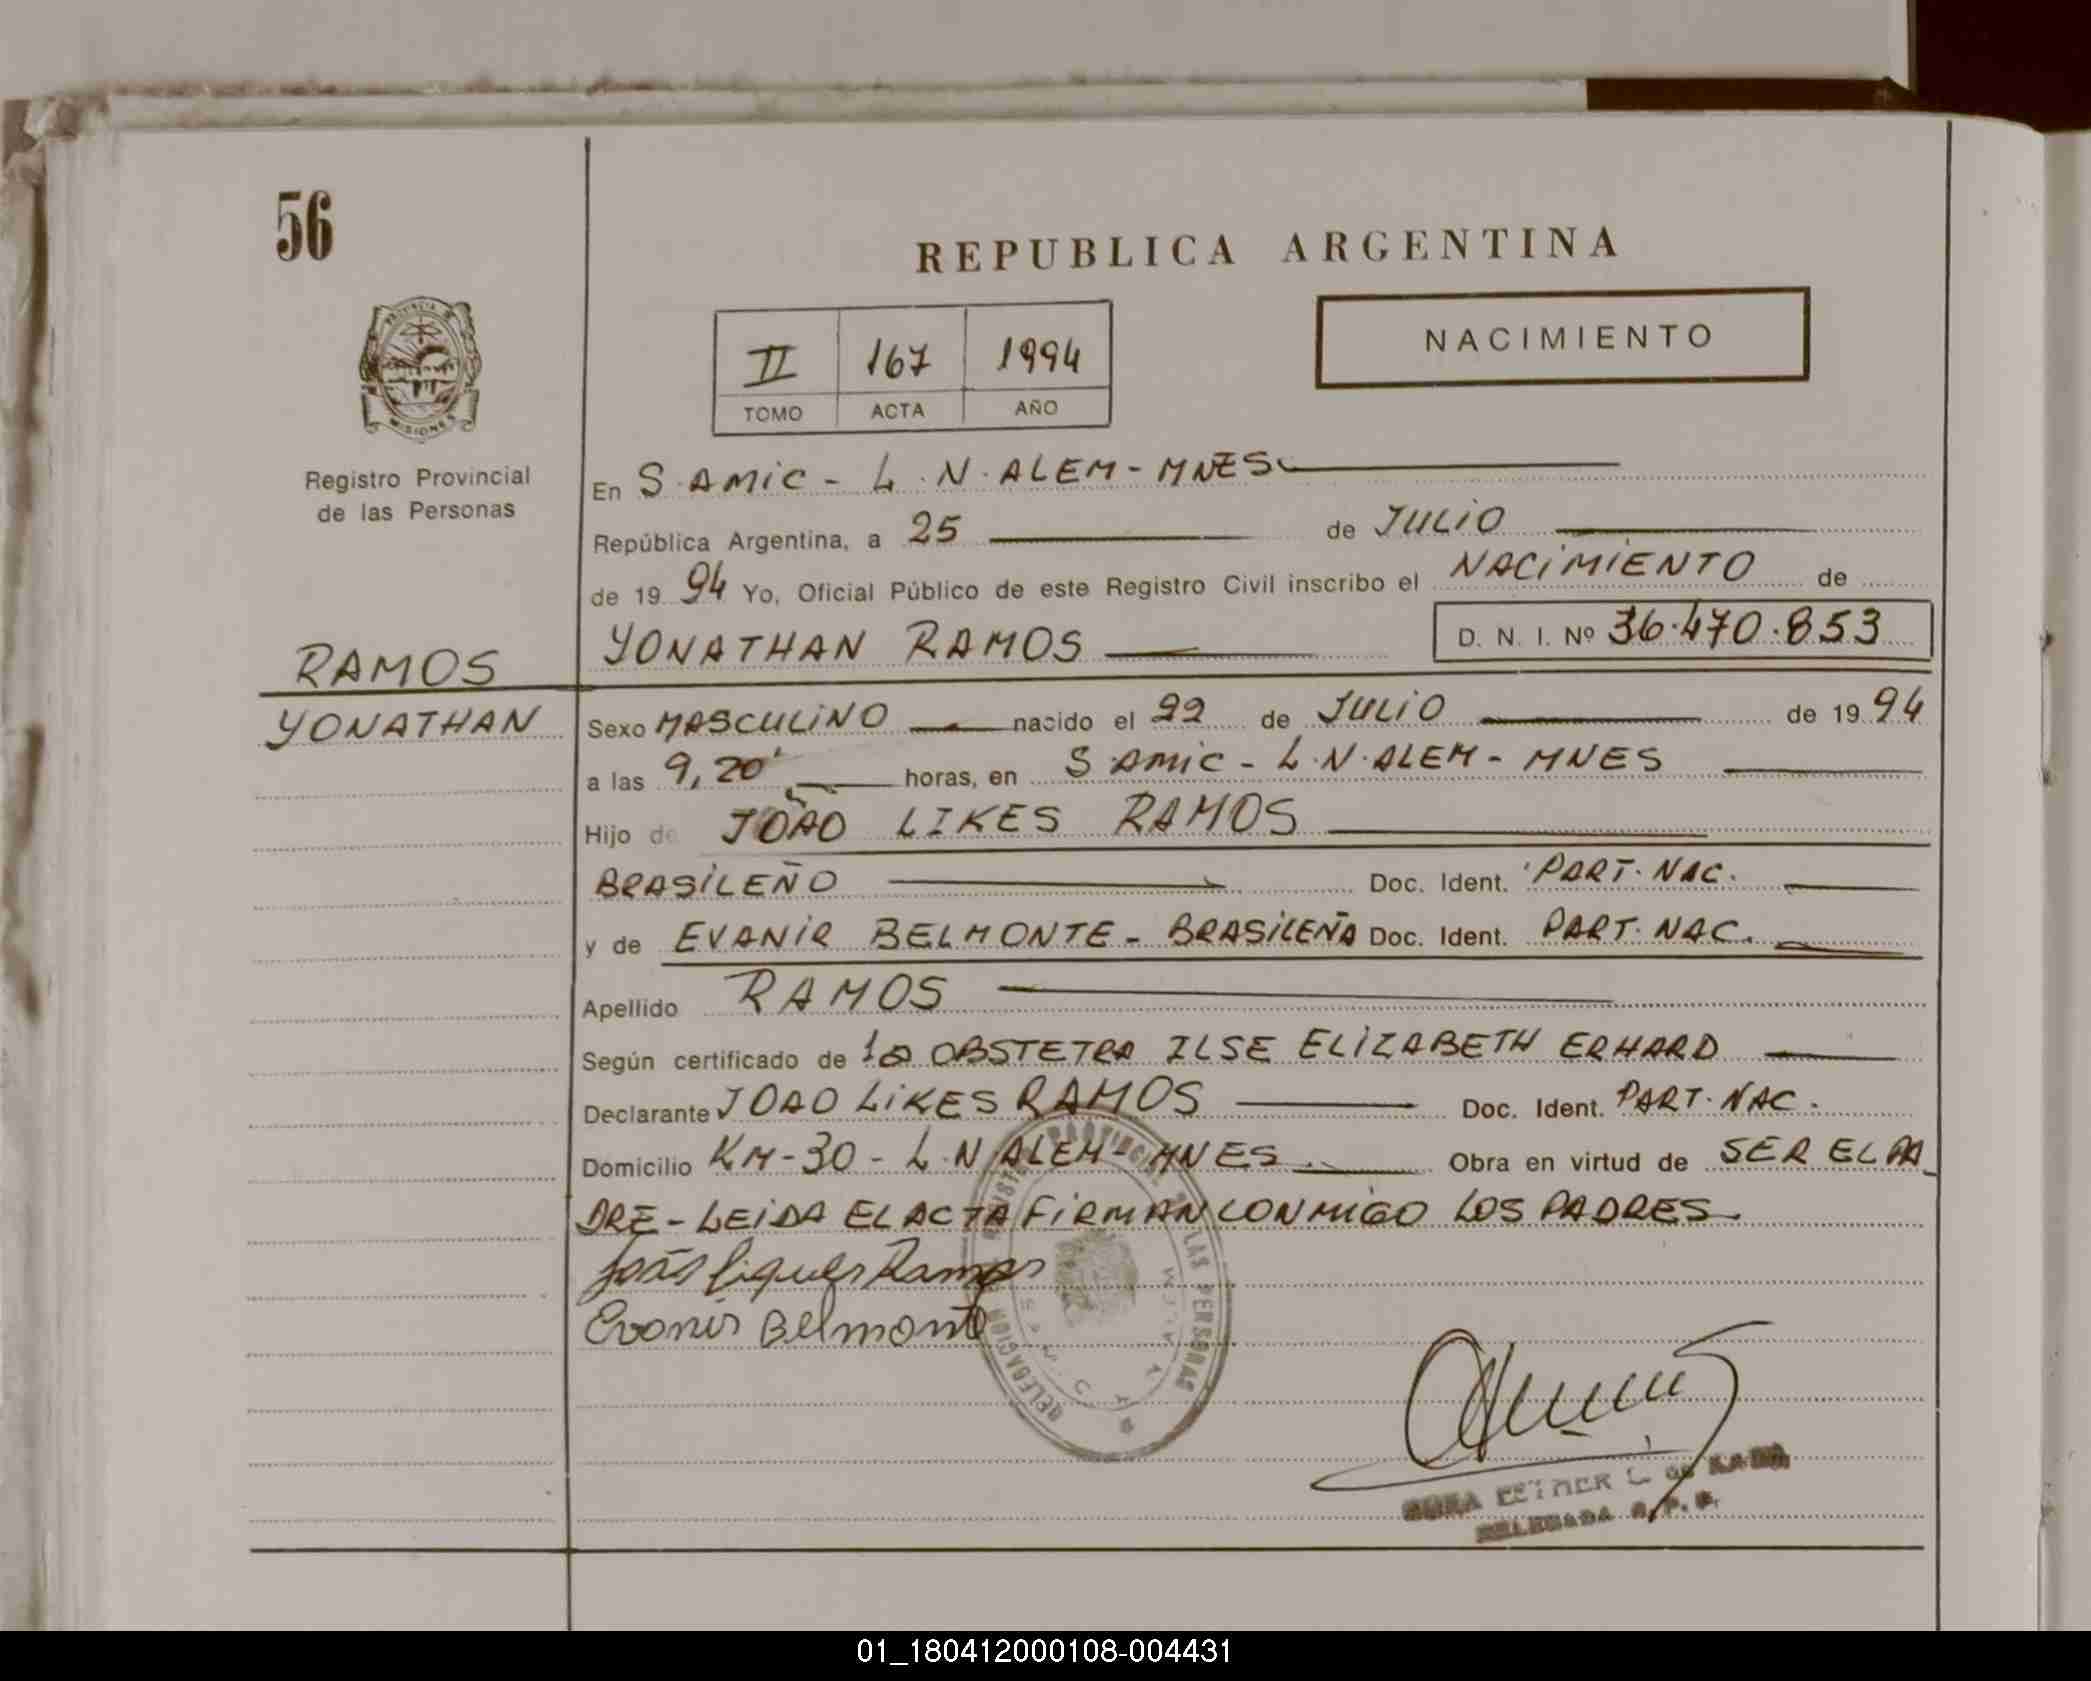 56
REPUBLICA ARGENTINA
PROVINCIA DE
MISIONES
Registro Provincial
de las Personas
II 167 1994
TOMO ACTA AÑO
NACIMIENTO
En S. AMIC - L. N. ALEM - MNES
República Argentina, a 25 de JULIO
de 19 94 Yo, Oficial Público de este Registro Civil inscribo el NACIMIENTO de
YONATHAN RAMOS D. N. I. Nº 36.470.853
RAMOS
YONATHAN
Sexo MASCULINO nacido el 22 de JULIO de 19 94
a las 9,20' horas, en S. AMIC - L. N. ALEM - MNES
Hijo de JOÃO LIKES RAMOS
BRASILEÑO Doc. Ident. PART. NAC.
y de EVANIR BELMONTE - BRASILEÑA Doc. Ident. PART. NAC.
Apellido RAMOS
Según certificado de la OBSTETRA ILSE ELIZABETH ERHARD
Declarante JOAO LIKES RAMOS Doc. Ident. PART. NAC.
Domicilio KM-30 - L. N. ALEM - MNES Obra en virtud de SER EL PA
DRE - LEIDA EL ACTA FIRMAN CONMIGO LOS PADRES.
João Ramos
Evanir Belmonte
DELEGACION PROVINCIAL DE LAS PERSONAS
ESTHER
DELEGADA R. P. P.
01_180412000108-004431